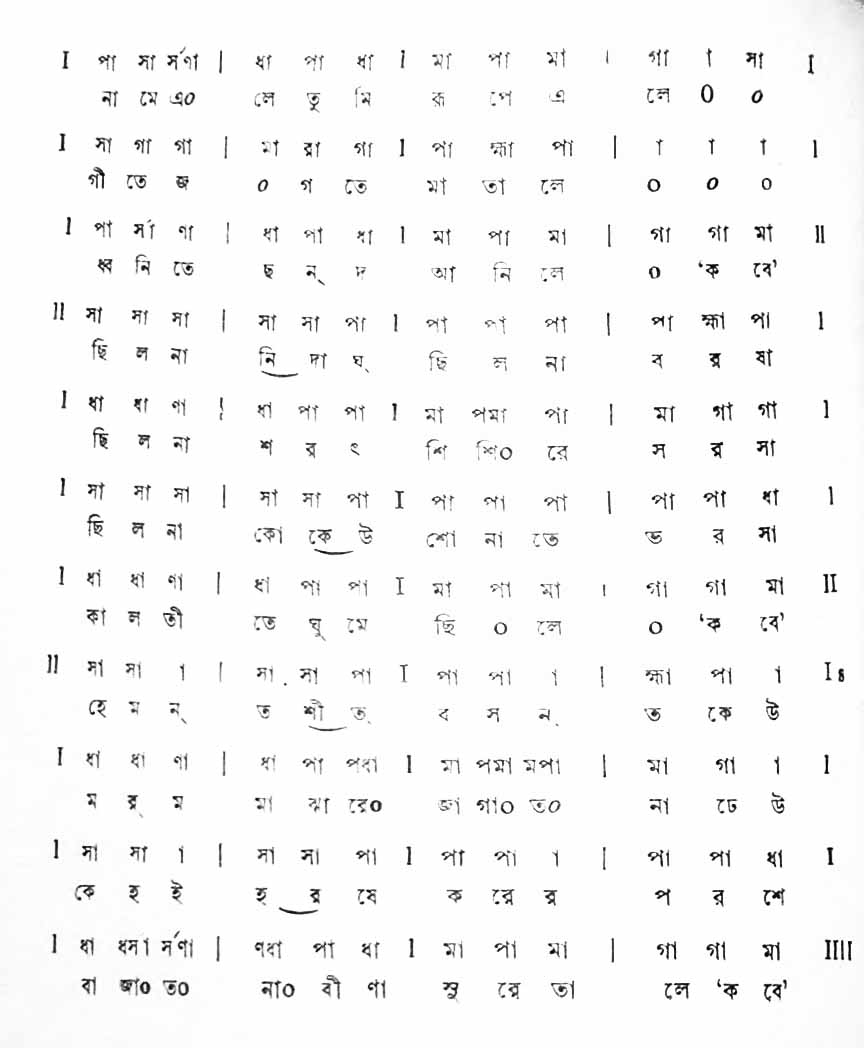 I পা সা র্সণা | ধা পা ধা I মা পা মা । গা া সা I
না মে এ০ লে তু মি রূ পে এ লে 0 ০
I সা গা গা | মা রা গা I পা হ্মা পা | া া া I
গী তে জ ০ গ তে মা তা লে ০ ০ ০
I পা র্সা ণা | ধা পা ধা I মা পা মা | গা গা মা II
ধ্ব নি তে ছ ন্ দ আ নি লে ০ ‘ক বে’
II সা সা সা | সা সা পা I পা পা পা | পা হ্মা পা I
ছি ল না নি দা ঘ্ ছি ল না ব র ষা
I ধা ধা ণা | ধা পা পা I মা পমা পা | মা গা গা I
ছি ল না শ র ৎ শি শি০ রে স র সা
I সা সা সা | সা সা পা I পা পা পা | পা পা ধা I
ছি ল না কো কে উ শো না তে ভ র সা
I ধা ধা ণা | ধা পা পা I মা পা মা । গা গা মা II
কা ল তী তে ঘু মে ছি ০ লে ০ ‘ক বে’
II সা সা া | সা সা পা I পা পা া | হ্মা পা া I
হে ম ন্ ত শী ত্ ব স ন্ ত কে উ
I ধা ধা ণা | ধা পা পধা I মা পমা মপা | মা গা া I
ম র্ ম মা ঝা রে০ জা গা০ ত০ না ঢে উ
I সা সা া | সা সা পা I পা পা া | পা পা ধা I
কে হ ই হ র ষে ক রে র প র শে
I ধা ধসা র্সণা | ণধা পা ধা I মা পা মা | গা গা মা IIII
বা জা০ ত০ না০ বী ণা সু রে তা লে ‘ক বে’